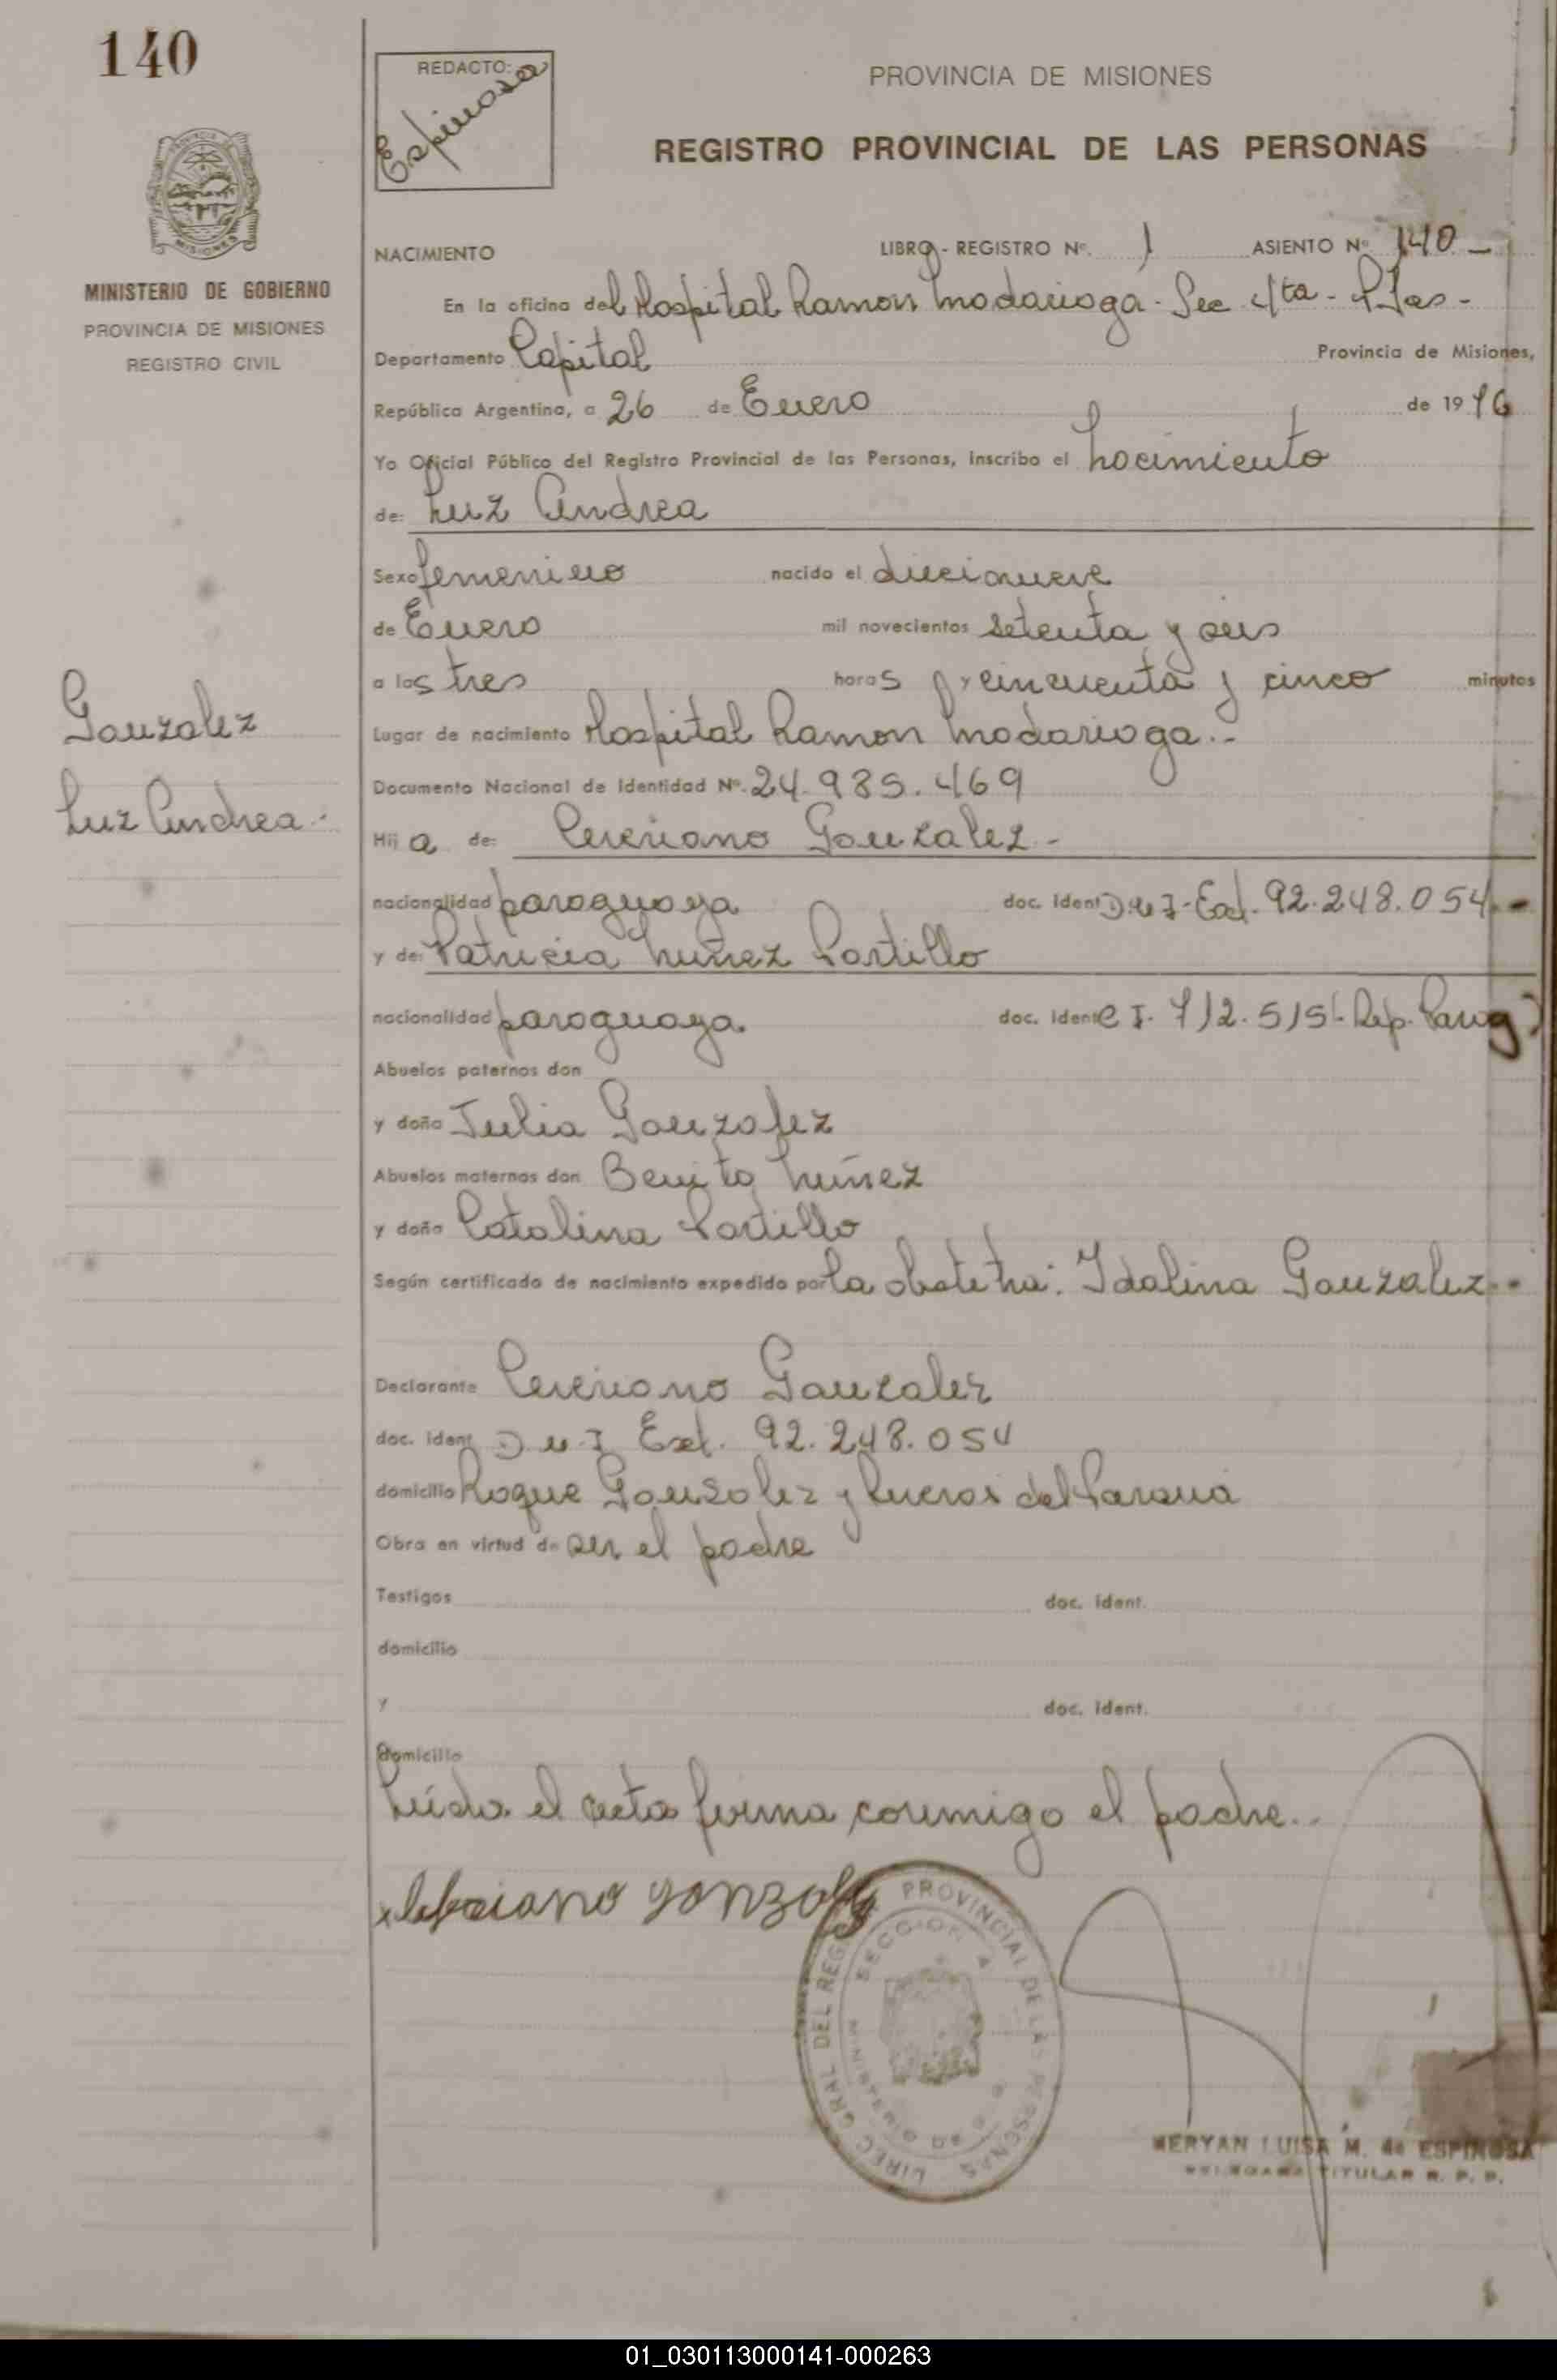 140
REDACTO:
Espinosa
PROVINCIA DE MISIONES
REGISTRO PROVINCIAL DE LAS PERSONAS
MINISTERIO DE GOBIERNO
PROVINCIA DE MISIONES
REGISTRO CIVIL
NACIMIENTO LIBRO - REGISTRO Nº. 1 ASIENTO Nº 140 -
En la oficina del Hospital Ramon Madariaga - Sec 4ta - P/das -
Departamento Capital Provincia de Misiones,
República Argentina, a 26 de Enero de 1976
Yo Oficial Público del Registro Provincial de las Personas, inscribo el nacimiento
de: Luz Andrea
Sexo femenino nacido el diecinueve
de Enero mil novecientos setenta y seis
a las tres horas y cincuenta y cinco minutos
Gonzalez
Luz Andrea.
Lugar de nacimiento Hospital Ramon Madariaga.-
Documento Nacional de Identidad Nº. 24.985.469
Hija de: Gonzalez.-
nacionalidad paraguaya doc. ident D.N.I. Ext. 92.248.054.-
y de: Patricia Nuñez Portillo
nacionalidad paraguaya. doc. ident C I. 712.515 (Rep. Parag)
Abuelos paternos don
y doña Julia Gonzalez
Abuelos maternos don Benito Nuñez
y doña Catalina Portillo
Según certificado de nacimiento expedido por la obstetra: Idalina Gonzalez.-
Declarante Gonzalez
doc. ident D N I Ext. 92.248.054
domicilio Roque Gonzalez y del Parana
Obra en virtud de ser el padre
Testigos doc. ident.
domicilio
y doc. ident.
domicilio
Leida el acta firma conmigo el padre..
gonzalez
DIREC GRAL DEL REG PROVINCIAL DE LAS PERSONAS
SECCION 4
MERYAN LUISA M. de ESPINOSA
DELEGADA TITULAR R. P. P.
01_030113000141-000263